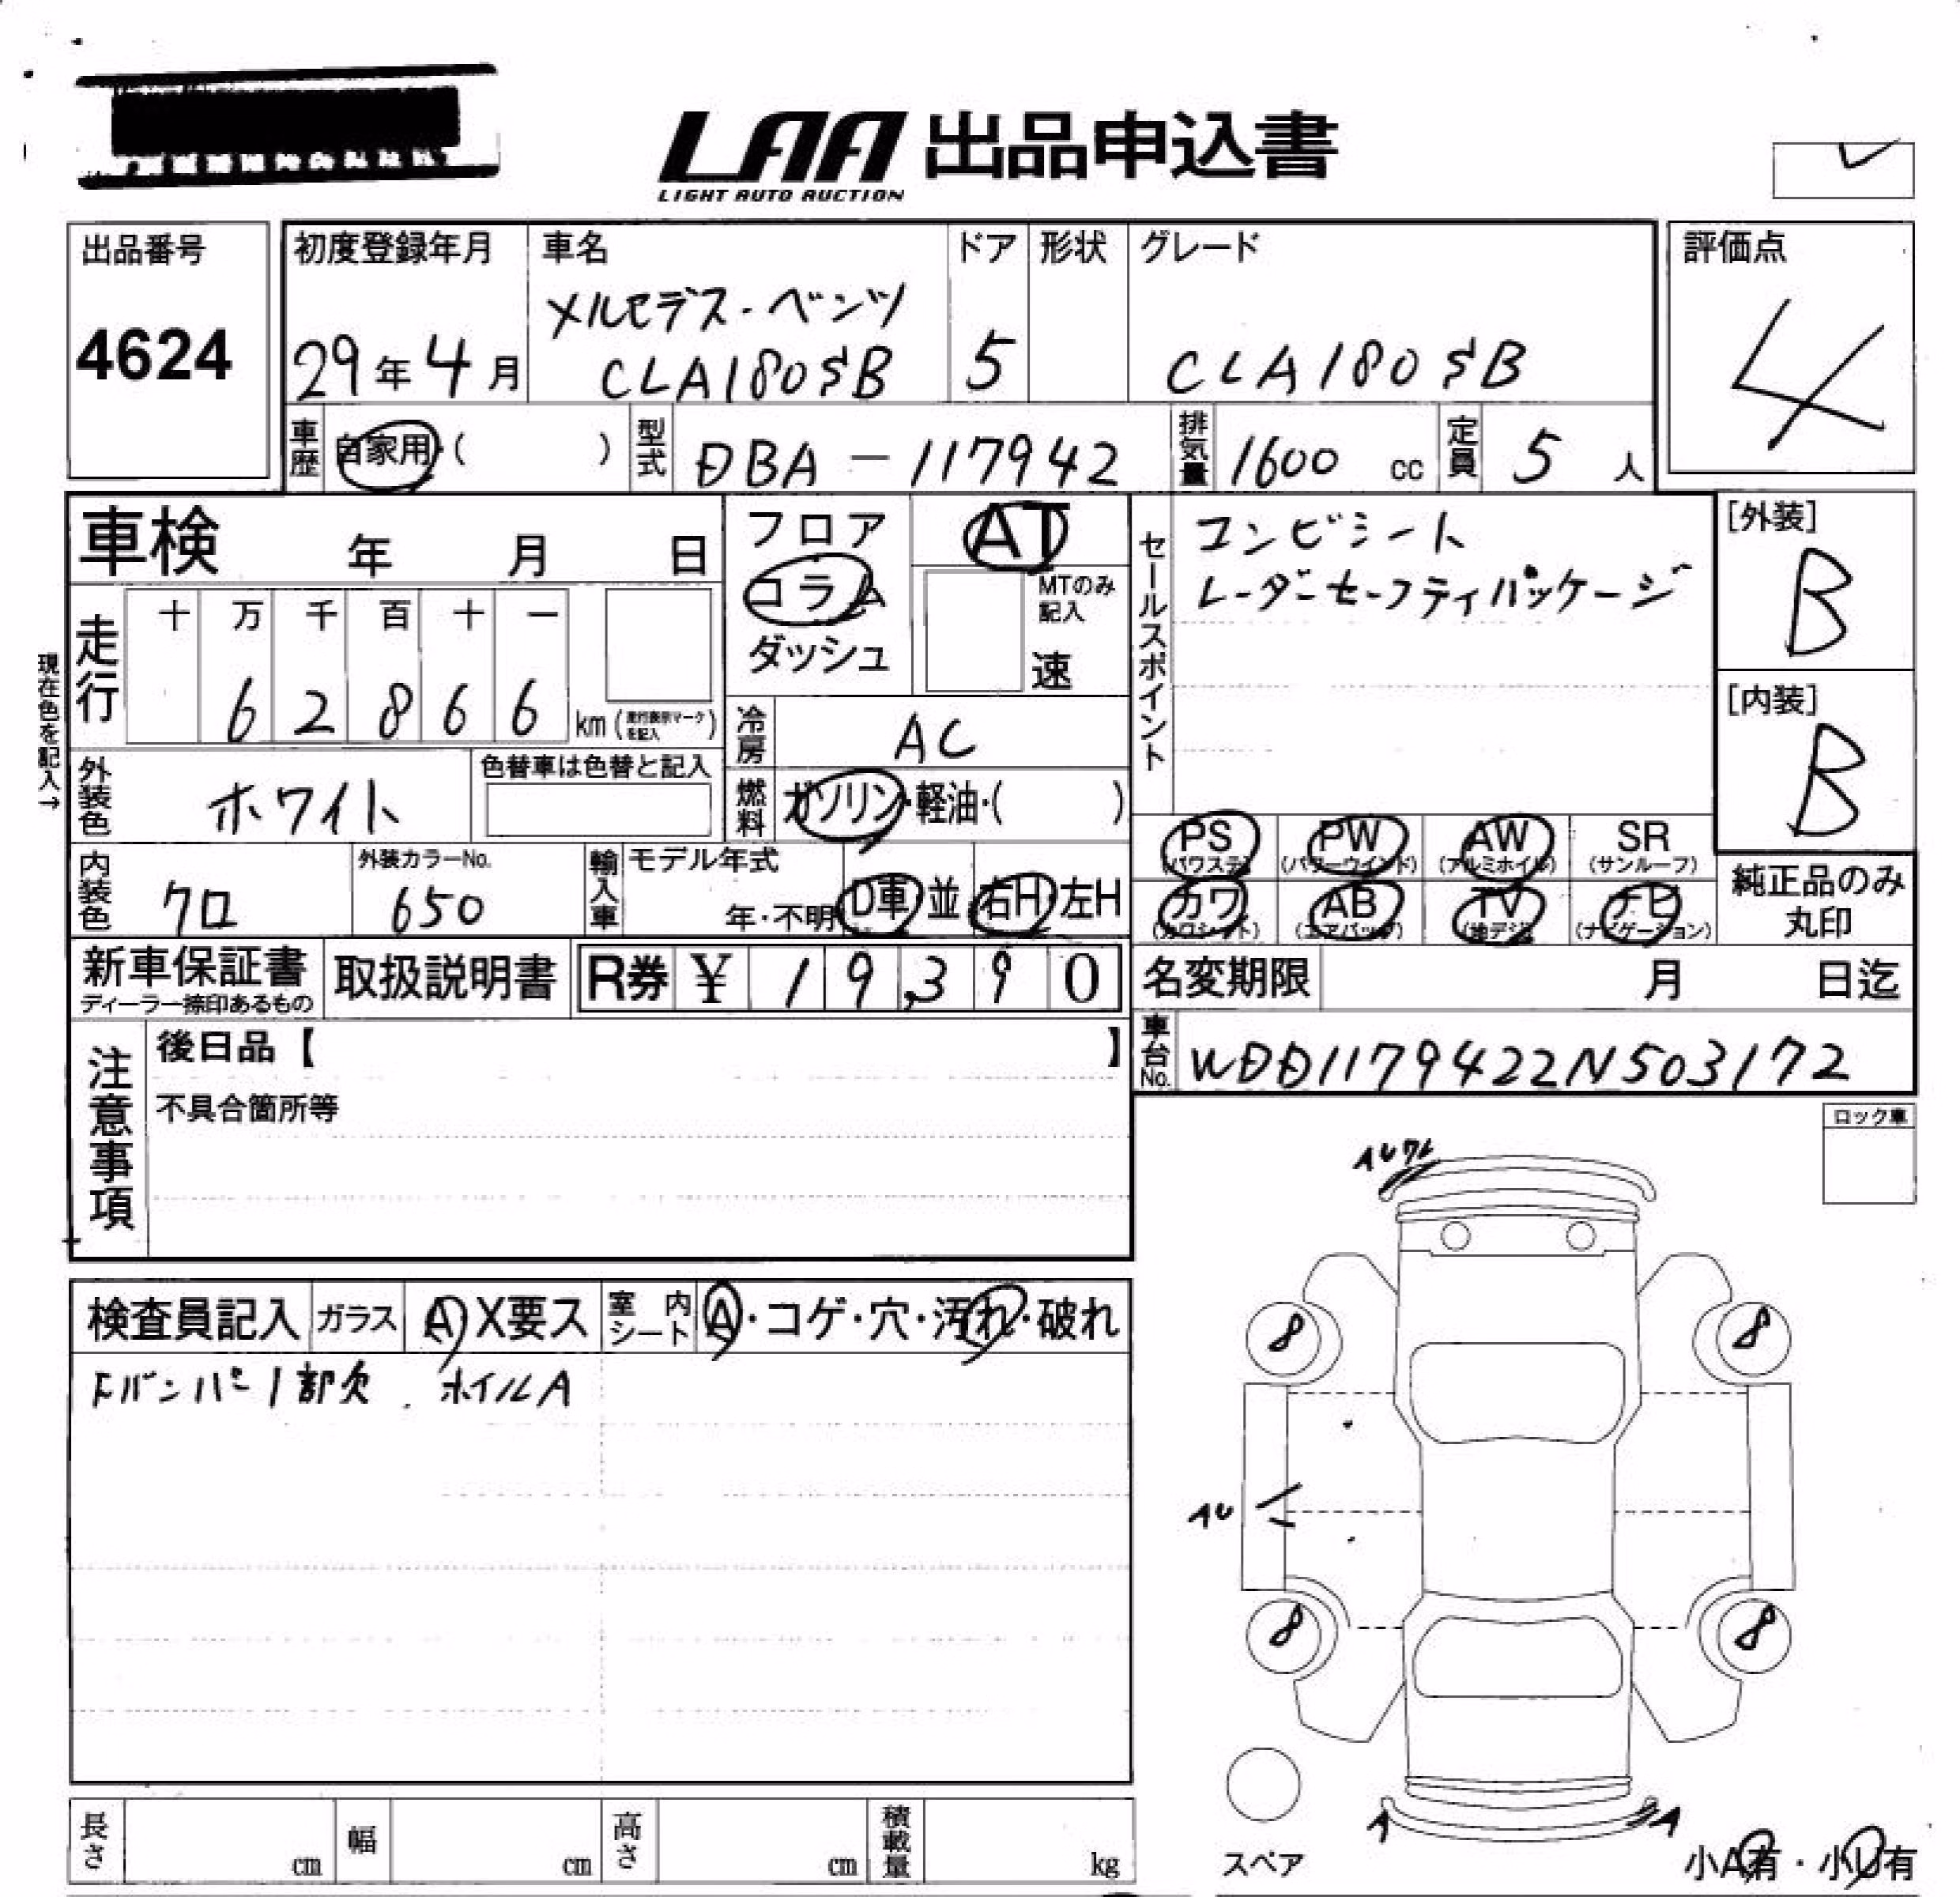 LAA 出品申込書
LIGHT AUTO AUCTION
出品番号
4624
初度登録年月
29年4月
車名
メルセデス・ベンツ
CLA180SB
ドア
5
形状
グレード
CLA180SB
評価点
4
車歴 自家用・( )
型式 DBA-117942
排気量 1600 cc
定員 5 人
車検 年 月 日
フロア
コラム
ダッシュ
AT
MTのみ
記入
速
セールスポイント
コンビシート
レーダーセーフティパッケージ
[外装]
B
[内装]
B
現在色を記入→
走行
十 万 千 百 十 一
6 2 8 6 6 km(走行表示マークを記入)
冷房 AC
外装色 ホワイト
色替車は色替と記入
燃料 ガソリン・軽油・( )
PS (パワステ)
PW (パワーウインド)
AW (アルミホイル)
SR (サンルーフ)
カワ (カワシート)
AB (エアバッグ)
TV (地デジ)
ナビ (ナビゲーション)
純正品のみ
丸印
内装色 クロ
外装カラーNo.
650
輸入車
モデル年式
年・不明
D車・並
右H・左H
新車保証書
ディーラー捺印あるもの
取扱説明書
R券 ¥ 19,390
名変期限 月 日迄
車台No. WDD1179422N503172
注意事項
後日品【 】
不具合箇所等
ロック車
AU
検査員記入
ガラス A・X要ス
室内シート A・コゲ・穴・汚れ・破れ
Fバンパー1部欠. ホイルA
8
8
AU
8
8
A
A
スペア
長さ cm
幅 cm
高さ cm
積載量 kg
小A有・小U有